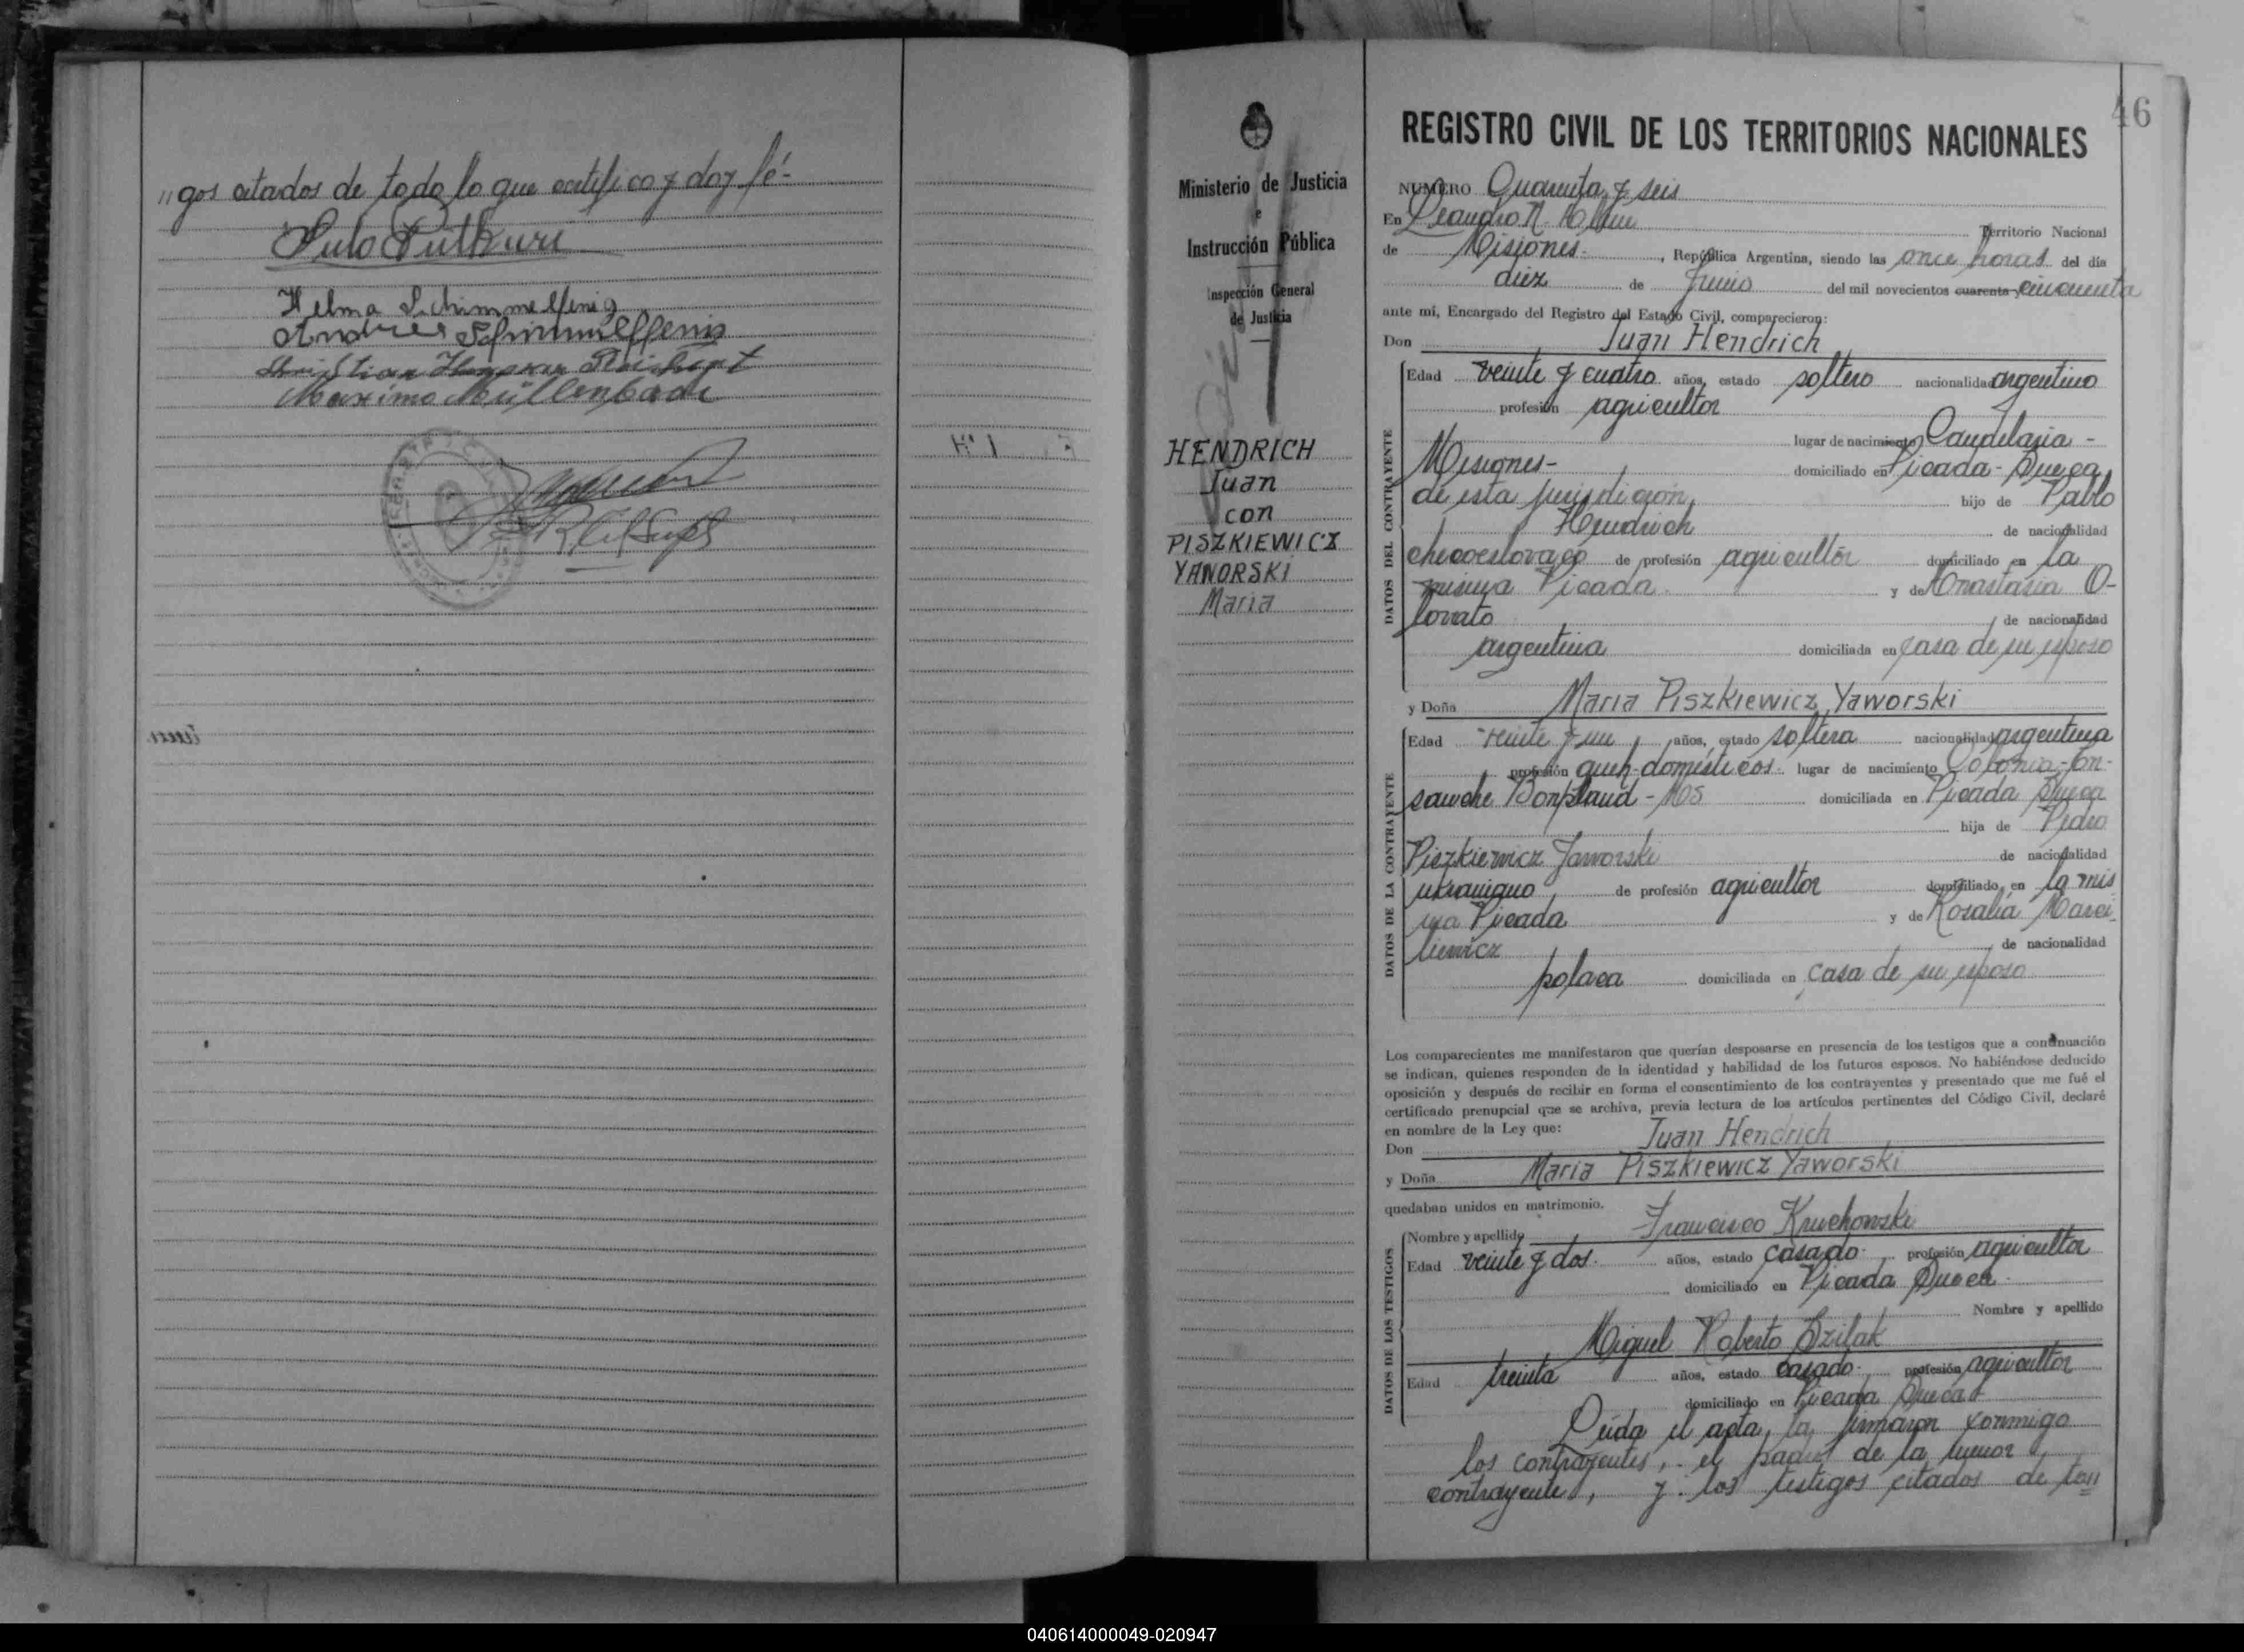 "gos citados de todo lo que certifico y doy fé-
Helma Schimmelfenig
Andres Schimmelfenig
Christian Reichert
Maximo Müllenbach
46
Ministerio de Justicia
e
Instrucción Pública
Inspección General
de Justicia
HENDRICH
Juan
con
PISZKIEWICZ
YAWORSKI
Maria
REGISTRO CIVIL DE LOS TERRITORIOS NACIONALES
NUMERO Quarenta y seis
En Leandro N. Alem Territorio Nacional
de Misiones- , República Argentina, siendo las once horas del día
diez de Junio del mil novecientos cuarenta y cincuenta
ante mí, Encargado del Registro del Estado Civil, comparecieron:
Don Juan Hendrich
DATOS DEL CONTRAYENTE
Edad veinte y cuatro años, estado soltero nacionalidad argentino
profesión agricultor
lugar de nacimiento Candelaria -
Misiones- domiciliado en Picada - Sueca
de esta jurisdicción, hijo de Pablo
Hendrich de nacionalidad
checoeslovaco de profesión agricultor domiciliado en la
misma Picada y de Anastasia O-
lorrato de nacionalidad
argentina domiciliada en casa de su esposo
y Doña Maria Piszkiewicz Yaworski
DATOS DE LA CONTRAYENTE
Edad veinte y un años, estado soltera nacionalidad argentina
profesión queh-domésticos- lugar de nacimiento Colonia-
Bonpland - Ms domiciliada en Picada Sueca
hija de Pedro
Piszkiewicz Jaworski de nacionalidad
ukraniano, de profesión agricultor domiciliado en la mis
ma Picada y de Rosalia Marci-
liewicz de nacionalidad
polaca domiciliada en casa de su esposo
Los comparecientes me manifestaron que querían desposarse en presencia de los testigos que a continuación
se indican, quienes responden de la identidad y habilidad de los futuros esposos. No habiéndose deducido
oposición y después de recibir en forma el consentimiento de los contrayentes y presentado que me fué el
certificado prenupcial que se archiva, previa lectura de los artículos pertinentes del Código Civil, declaré
en nombre de la Ley que:
Don Juan Hendrich
y Doña Maria Piszkiewicz Yaworski
quedaban unidos en matrimonio.
DATOS DE LOS TESTIGOS
Nombre y apellido Francisco Kruchowski
Edad veinte y dos. años, estado casado- profesión agricultor
domiciliado en Picada Sueca-
Nombre y apellido
Miguel Roberto Szilak
Edad treinta años, estado casado- profesión agricultor
domiciliado en Picada Sueca-
Leída el acta, la firmaron conmigo
los contrayentes, el padre de la menor
contrayente, y los testigos citados de to"
040614000049-020947